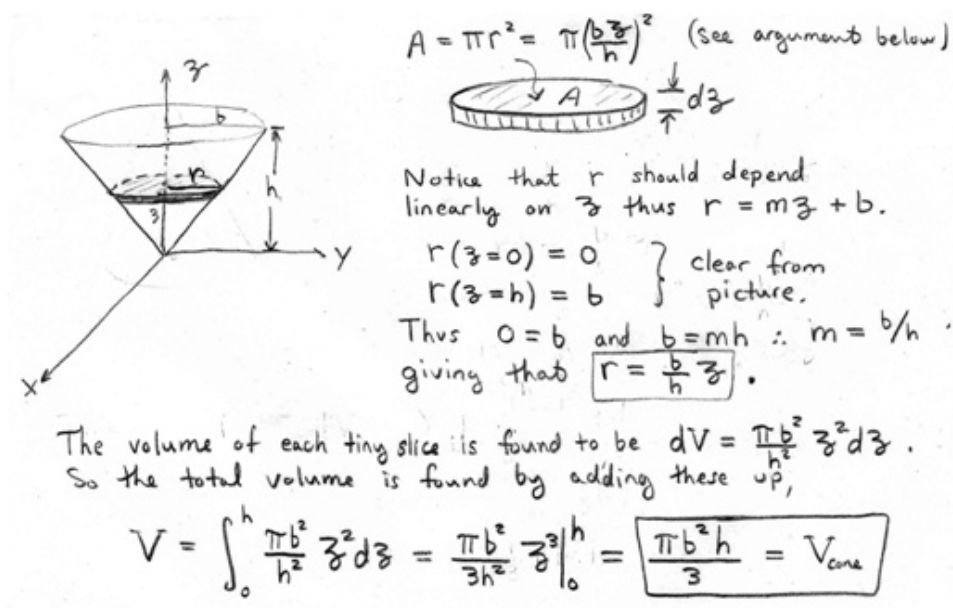 A = πr² = π(bz/h)² (see argument below)
z
b
A
dz
r
h
z
y
x
Notice that r should depend
linearly on z thus r = mz + b.
r(z=0) = 0
r(z=h) = b
} clear from
picture.
Thus 0 = b and b = mh ∴ m = b/h .
giving that r = b/h z .
The volume of each tiny slice is found to be dV = πb²/h² z²dz .
So the total volume is found by adding these up,
V = ∫₀ʰ πb²/h² z²dz = πb²/3h² z³|₀ʰ = πb²h/3 = Vcone